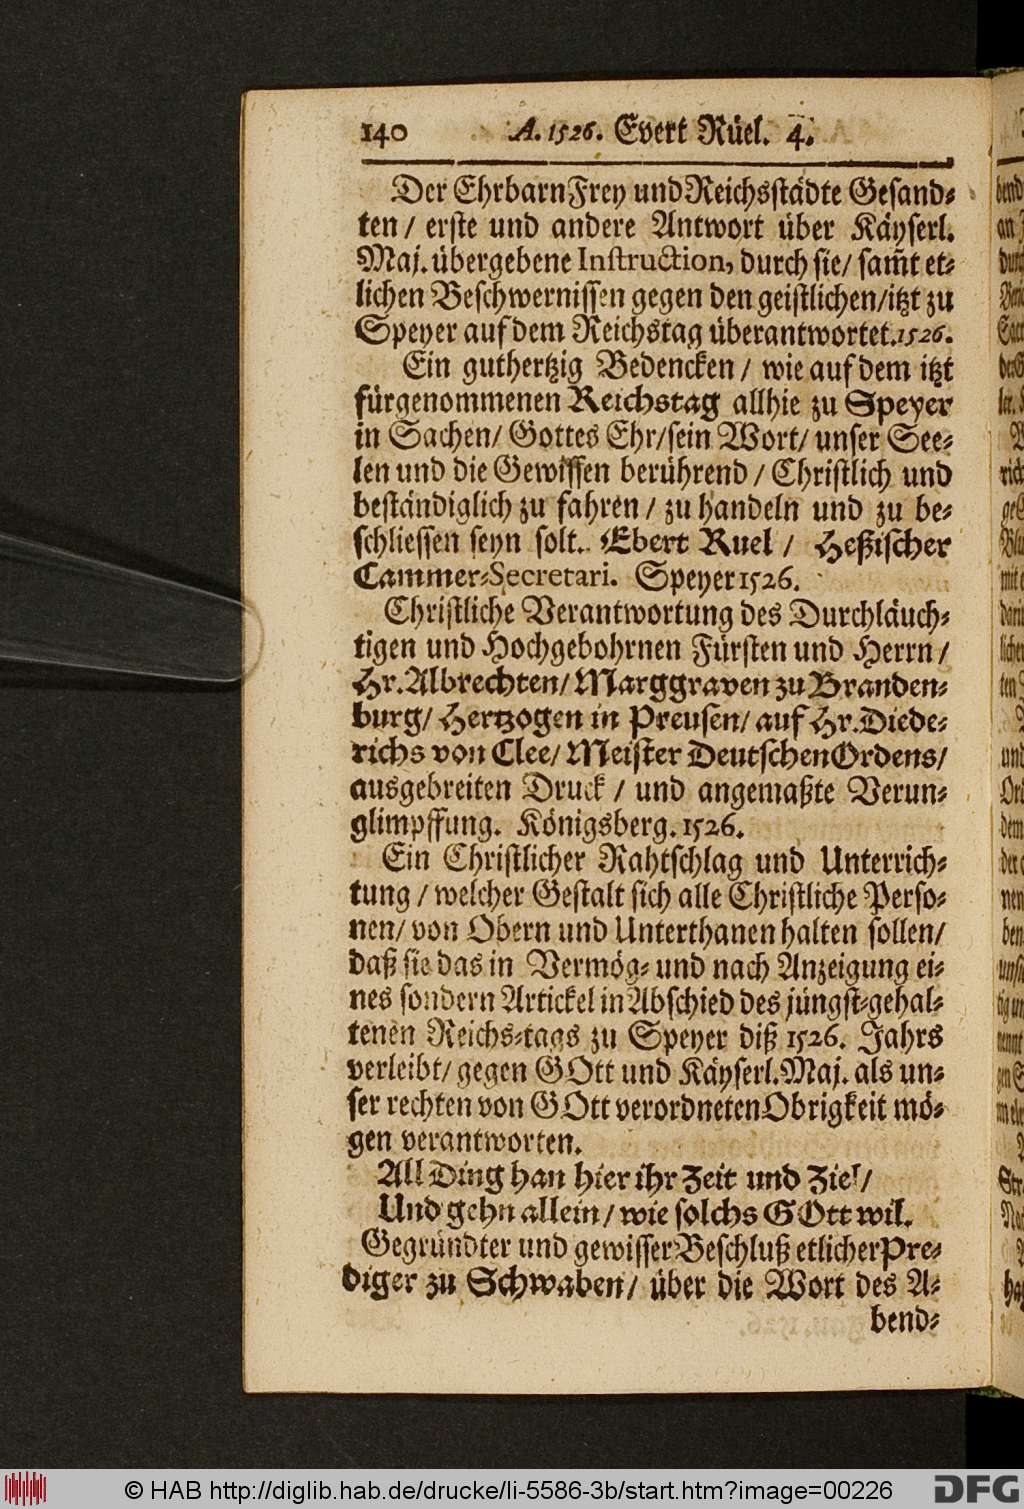 140 A. 1526. Evert Rüel. 4.
Der Ehrbarn Frey und Reichsstädte Gesand-
ten / erste und andere Antwort über Käyserl.
Maj. übergebene Instruction, durch sie / sam̄t et-
lichen Beschwernissen gegen den geistlichen / itzt zu
Speyer auf dem Reichstag überantwortet. 1526.
Ein guthertzig Bedencken / wie auf dem itzt
fürgenommenen Reichstag allhie zu Speyer
in Sachen / Gottes Ehr / sein Wort / unser See-
len und die Gewissen berührend / Christlich und
beständiglich zu fahren / zu handeln und zu be-
schliessen seyn solt. Ebert Ruel / Heßischer
Cammer-Secretari. Speyer 1526.
Christliche Verantwortung des Durchläuch-
tigen und Hochgebohrnen Fürsten und Herrn /
Hr. Albrechten / Marggraven zu Branden-
burg / Hertzogen in Preusen / auf Hr. Diede-
richs von Clee / Meister Deutschen Ordens /
ausgebreiten Druck / und angemaßte Verun-
glimpffung. Königsberg. 1526.
Ein Christlicher Rahtschlag und Unterrich-
tung / welcher Gestalt sich alle Christliche Perso-
nen / von Obern und Unterthanen halten sollen /
daß sie das in Vermög- und nach Anzeigung ei-
nes sondern Artickel in Abschied des jüngst-gehal-
tenen Reichs-tags zu Speyer diß 1526. Jahrs
verleibt / gegen GOtt und Käyserl. Maj. als un-
ser rechten von GOtt verordneten Obrigkeit mö-
gen verantworten.
All Ding han hier ihr Zeit und Ziel /
Und gehn allein / wie solchs GOtt wil.
Gegründter und gewisser Beschluß etlicher Pre-
diger zu Schwaben / über die Wort des A-
bend-
© HAB http://diglib.hab.de/drucke/li-5586-3b/start.htm?image=00226
DFG